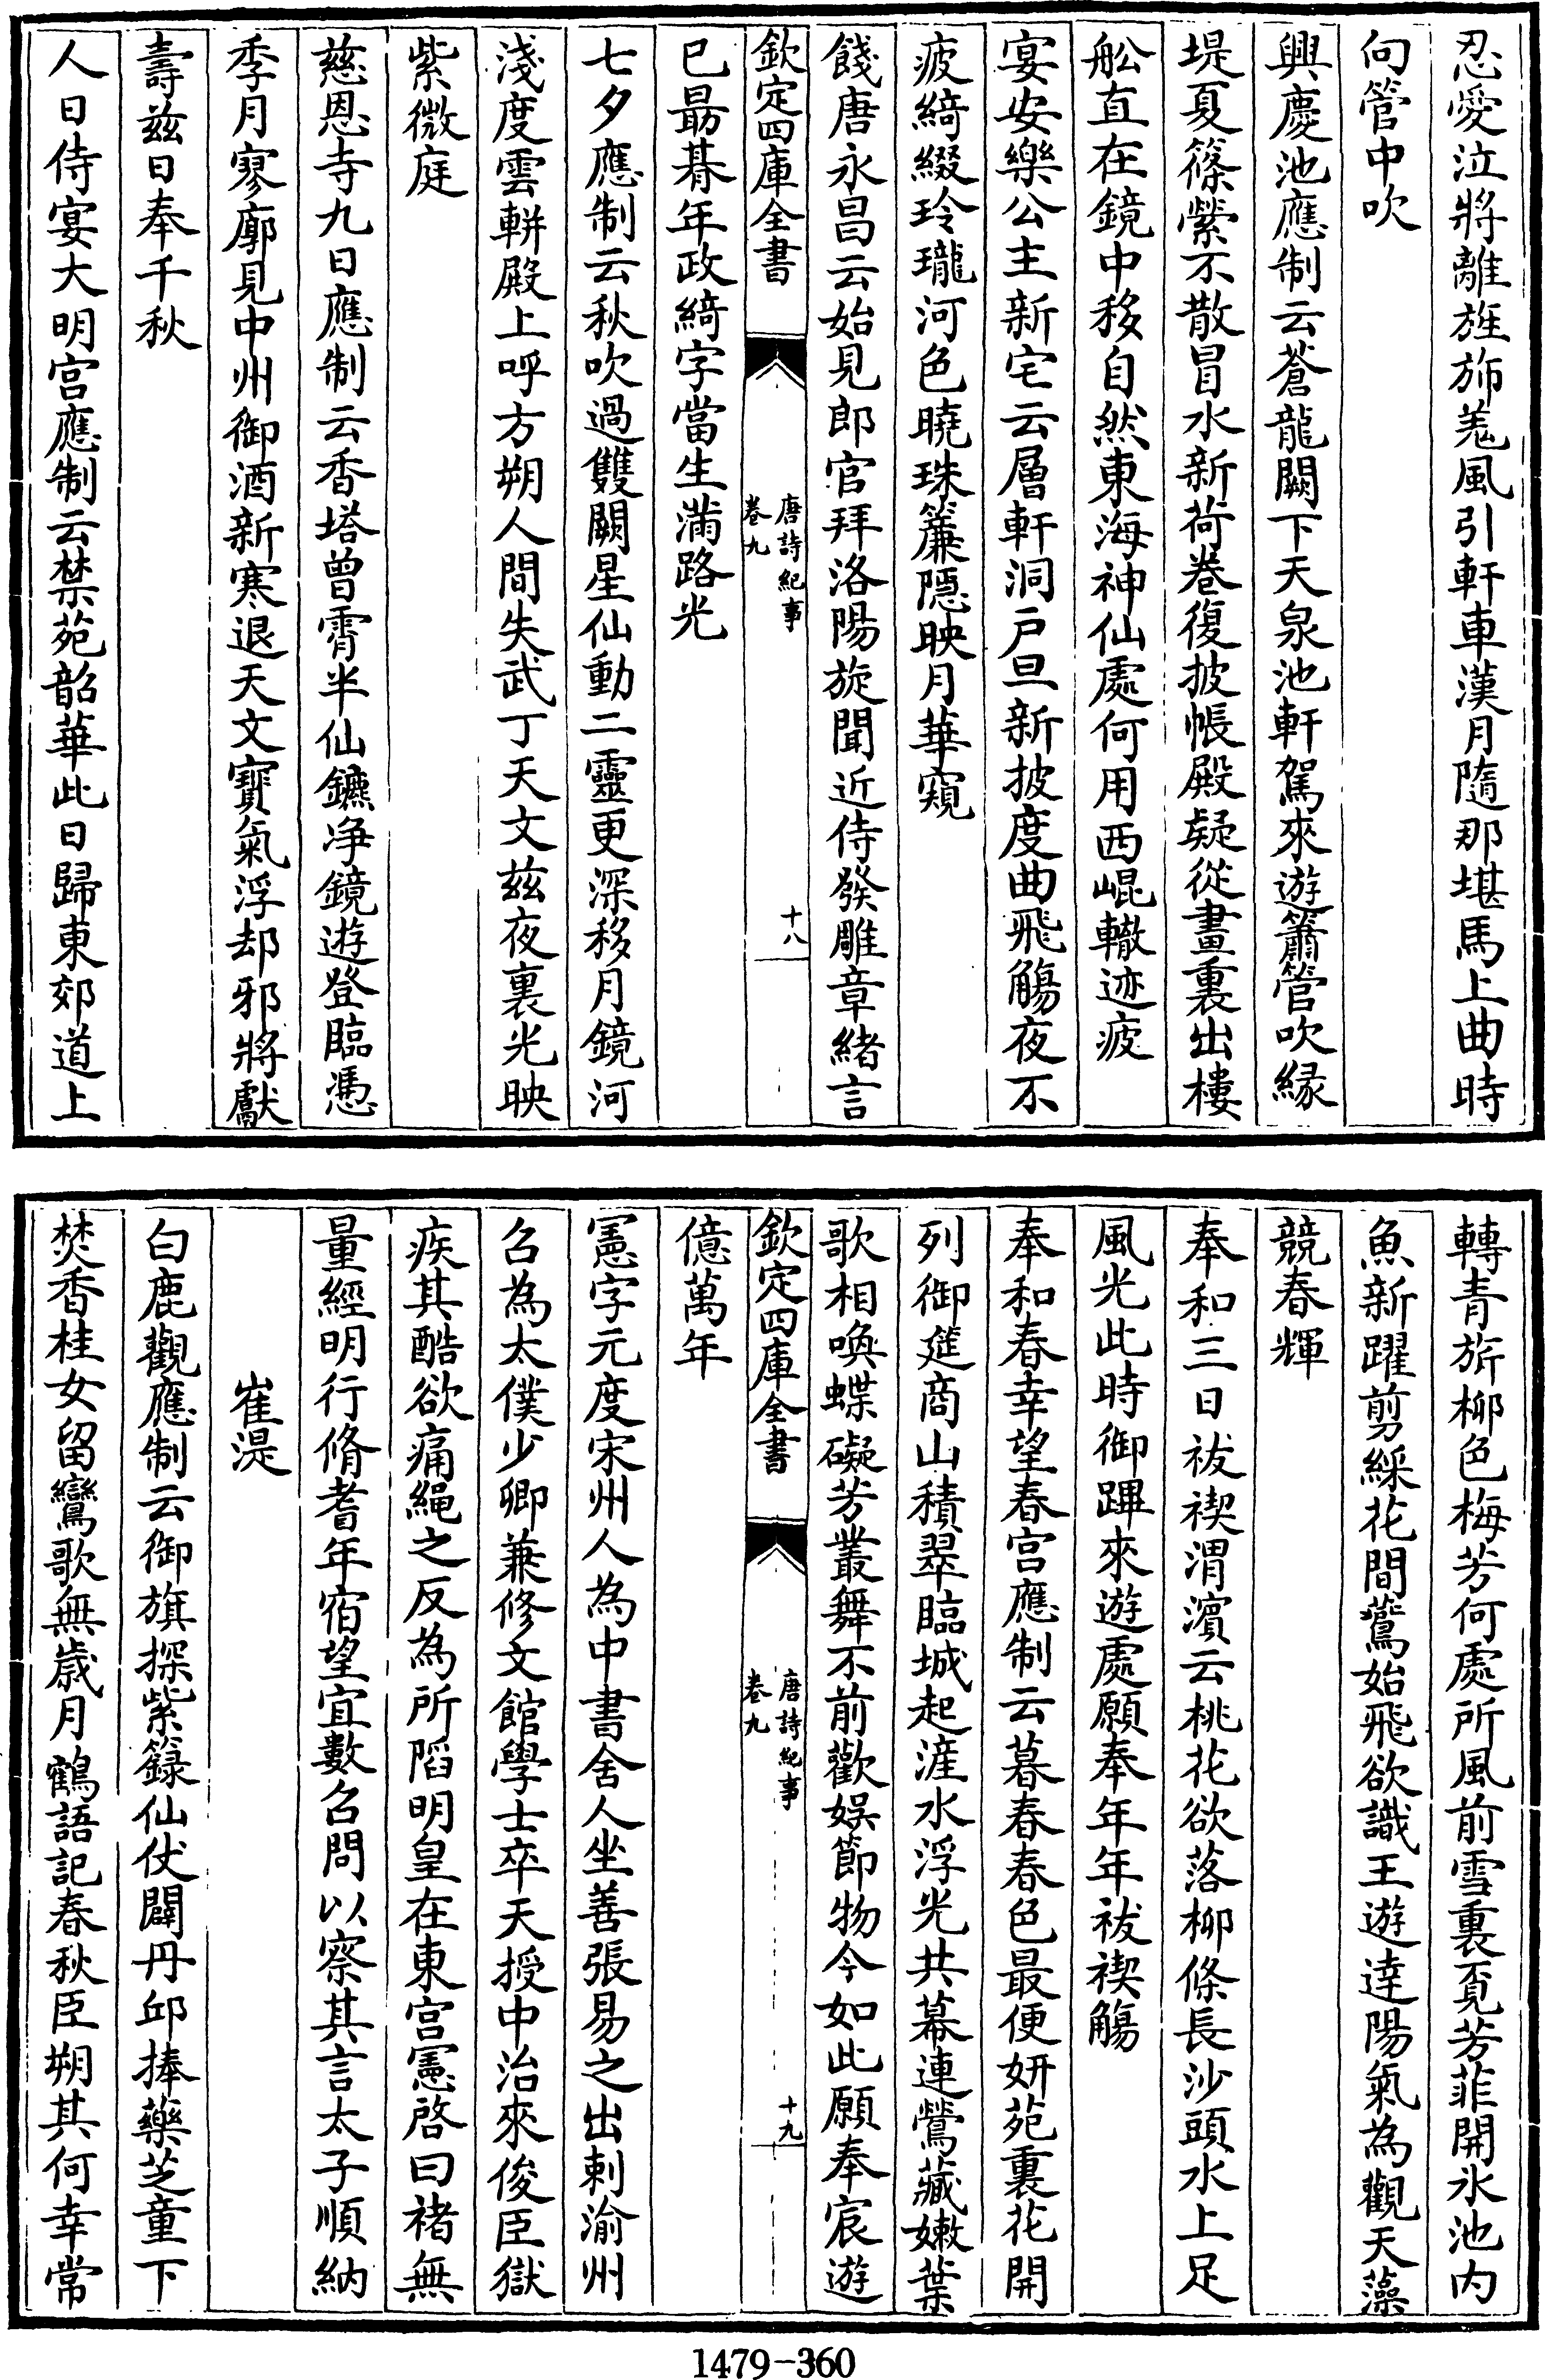 忍愛泣將離旌斾羗風引軒車漢月隨那堪馬上曲時
向管中吹
興慶池應制云蒼龍闕下天泉池軒駕來遊簫管吹縁
堤夏篠縈不散冒水新荷卷復披帳殿疑從畫裏出樓
舩直在鏡中移自然東海神仙處何用西崐轍迹疲
宴安樂公主新宅云層軒洞戸旦新披度曲飛觴夜不
疲綺綴玲瓏河色曉珠簾隱映月華窺
餞唐永昌云始見郎官拜洛陽旋聞近侍發雕章緒言
欽定四庫全書
唐詩紀事
卷九
十八
已朂朞年政綺字當生滿路光
七夕應制云秋吹過雙闕星仙動二靈更深移月鏡河
淺度雲軿殿上呼方朔人間失武丁天文兹夜裏光映
紫微庭
慈恩寺九日應制云香塔曾霄半仙鑣净鏡遊登臨憑
季月寥廓見中州御酒新寒退天文寶氣浮却邪將獻
壽兹日奉千秋
人日侍宴大明宫應制云禁苑韶華此日歸東郊道上
轉青旂柳色梅芳何處所風前雪裏覔芳菲開氷池内
魚新躍剪綵花間鷰始飛欲識王遊逹陽氣為觀天藻
競春輝
奉和三日祓禊渭濵云桃花欲落柳條長沙頭水上足
風光此時御蹕來遊處願奉年年祓禊觴
奉和春幸望春宫應制云暮春春色最便妍苑裏花開
列御筵商山積翠臨城起滻水浮光共幕連鶯藏嫩葉
歌相喚蝶礙芳叢舞不前歡娯節物今如此願奉宸遊
欽定四庫全書
唐詩紀事
卷九
十九
億萬年
憲字元度宋州人為中書舍人坐善張易之出刺渝州
召為太僕少卿兼修文館學士卒天授中治來俊臣獄
疾其酷欲痛繩之反為所䧟明皇在東宫憲啓曰禇無
量經明行脩耆年宿望宜數召問以察其言太子順納
崔湜
白鹿觀應制云御旗探紫籙仙仗闢丹邱捧藥芝童下
焚香桂女留鸞歌無歳月鶴語記春秋臣朔其何幸常
1479-360